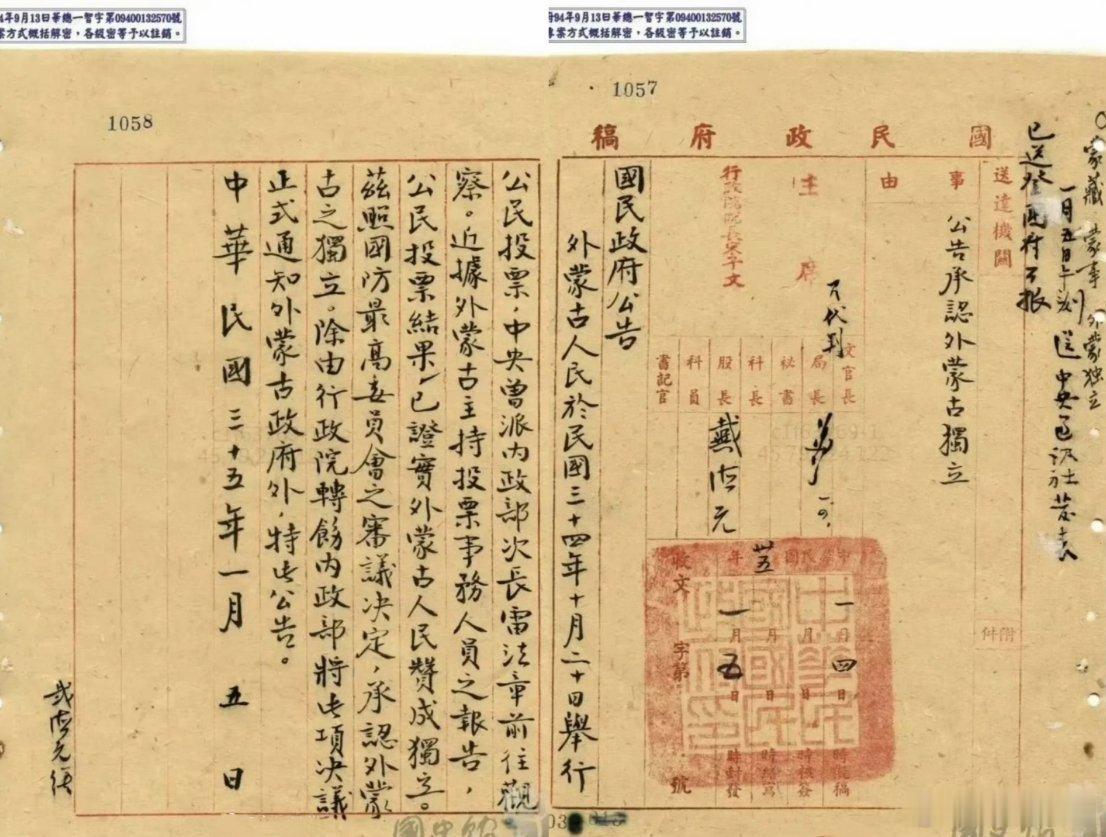 4年9月13日華總一智字第09400132570號
案方式概括解密，各級密等予以註銷。
府94年9月13日華總一智字第09400132570號
專案方式概括解密，各級密等予以註銷。
1057
1058
國民政府稿
蒙藏 蒙事 外蒙独立
已送登國府公报
送達機關
附件
事由
公告承認外蒙古獨立
主席
行政院院長宋子文
文官長
局長
祕書
科長
股長
科員
書記官
戴沛元
中華民國
卅五年
一月四日
一月五日
時擬稿
時核簽
時繕寫
時封發
收文
字第
號
國民政府公告
外蒙古人民於民國三十四年十月二十日舉行
公民投票，中央曾派內政部次長雷法章前往觀
察。近據外蒙古主持投票事務人員之報告，
公民投票結果，已證實外蒙古人民贊成獨立。
茲照國防最高委員會之審議決定，承認外蒙
古之獨立。除由行政院轉飭內政部將此項決議
正式通知外蒙古政府外，特此公告。
中華民國三十五年一月五日